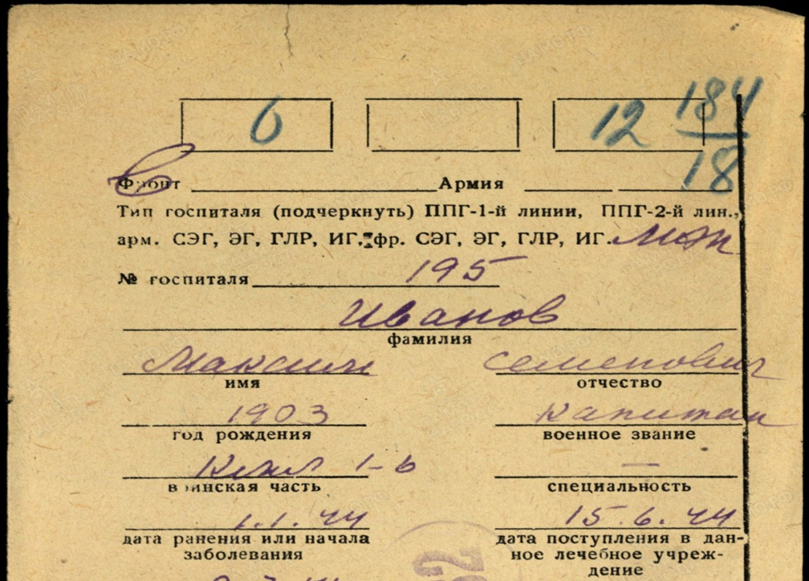 6 12 184
18
Фронт Армия
Тип госпиталя (подчеркнуть) ППГ-1-й линии, ППГ-2-й лин.,
арм. СЭГ, ЭГ, ГЛР, ИГ, фр. СЭГ, ЭГ, ГЛР, ИГ.
№ госпиталя 195
Иванов
фамилия
Максим Семенович
имя отчество
1903 Капитан
год рождения военное звание
1-6 —
воинская часть специальность
1.1.44 15.6.44
дата ранения или начала заболевания дата поступления в данное лечебное учреждение